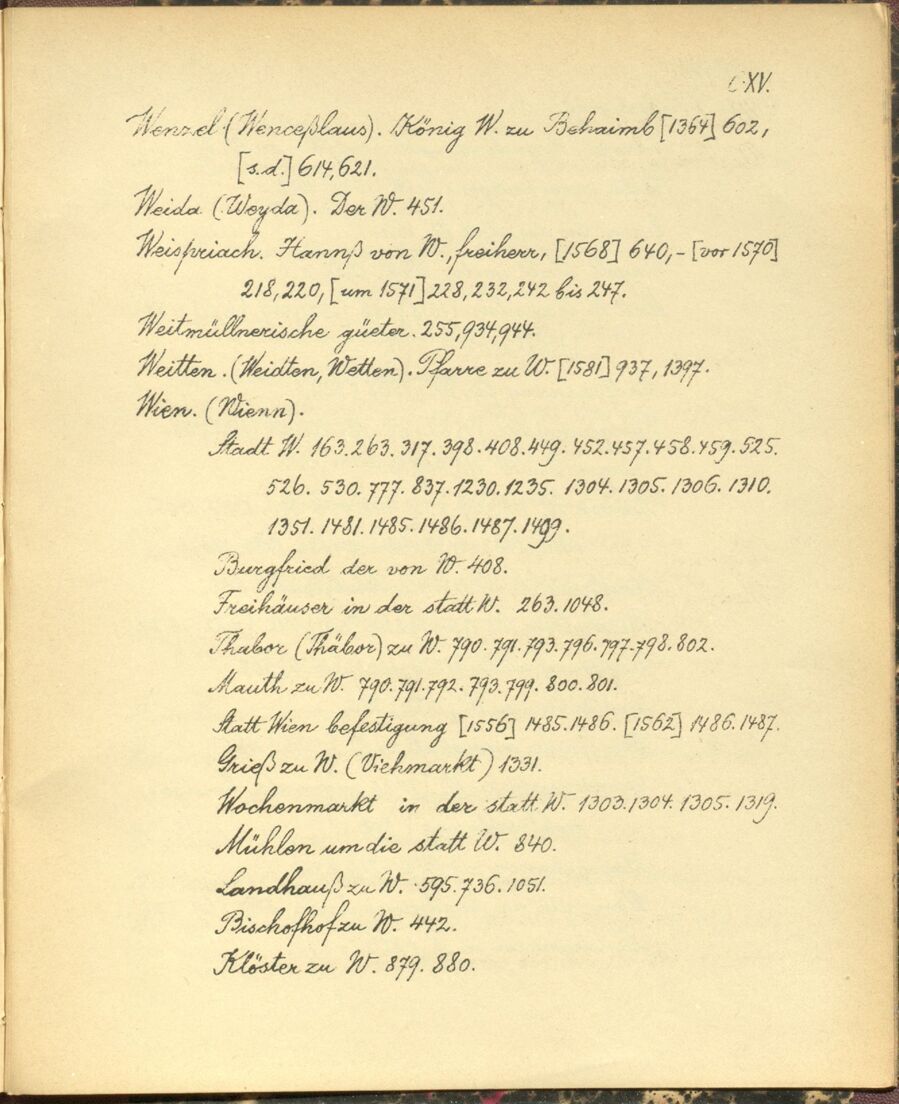 CXV.
Wenzel (Wenceßlaus). König W. zu Behaimb [1364] 602,
[s.d.] 614, 621.
Weida (Weyda). Der W. 451.
Weispriach. Hannß von W., freiherr, [1568] 640, - [vor 1570]
218, 220, [um 1571] 228, 232, 242 bis 247.
Weitmüllnerische güeter. 255, 934, 944.
Weitten. (Weidten, Wetten). Pfarre zu W. [1581] 937, 1397.
Wien. (Wienn).
Stadt W. 163. 263. 317. 398. 408. 449. 452. 457. 458. 459. 525.
526. 530. 777. 837. 1230. 1235. 1304. 1305. 1306. 1310.
1351. 1481. 1485. 1486. 1487. 1499.
Burgfried der von W. 408.
Freihäuser in der statt W. 263. 1048.
Thabor (Thäbor) zu W. 790. 791. 793. 796. 797. 798. 802.
Mauth zu W. 790. 791. 792. 793. 799. 800. 801.
Statt Wien befestigung [1556] 1485. 1486. [1562] 1486. 1487.
Grieß zu W. (Viehmarkt) 1331.
Wochenmarkt in der statt W. 1303. 1304. 1305. 1319.
Mühlen um die statt W. 840.
Landhauß zu W. 595. 736. 1051.
Bischofhof zu W. 442.
Klöster zu W. 879. 880.